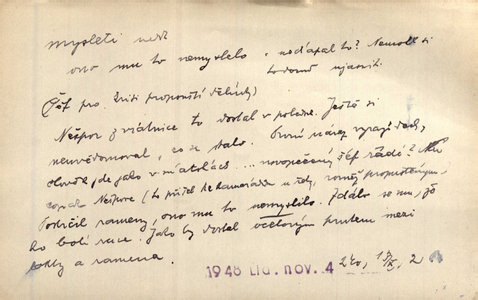 mysleti než
ono mu to nemyslelo, nechápal to? Nemohl si
to domů ujasnit.
(Šéf pro krisi propouští dělníky)
Nešpor z vrátnice to dostal v poledne. Ještě si
neuvědomoval, co se stalo. První návrhy
člověk jde jako v mátohách ... novopečený šéf řádí?
Nešpore (to přišel ke kamarádům u, rovněž propuštěným.
Pokrčil rameny, ono mu to nemyslilo. Zdálo se mu, že
ho bolí ruce. Jako by dostal ocelovým prutem mezi
a ramena.
1948 Lid. nov. 4 240, 13/X, 2